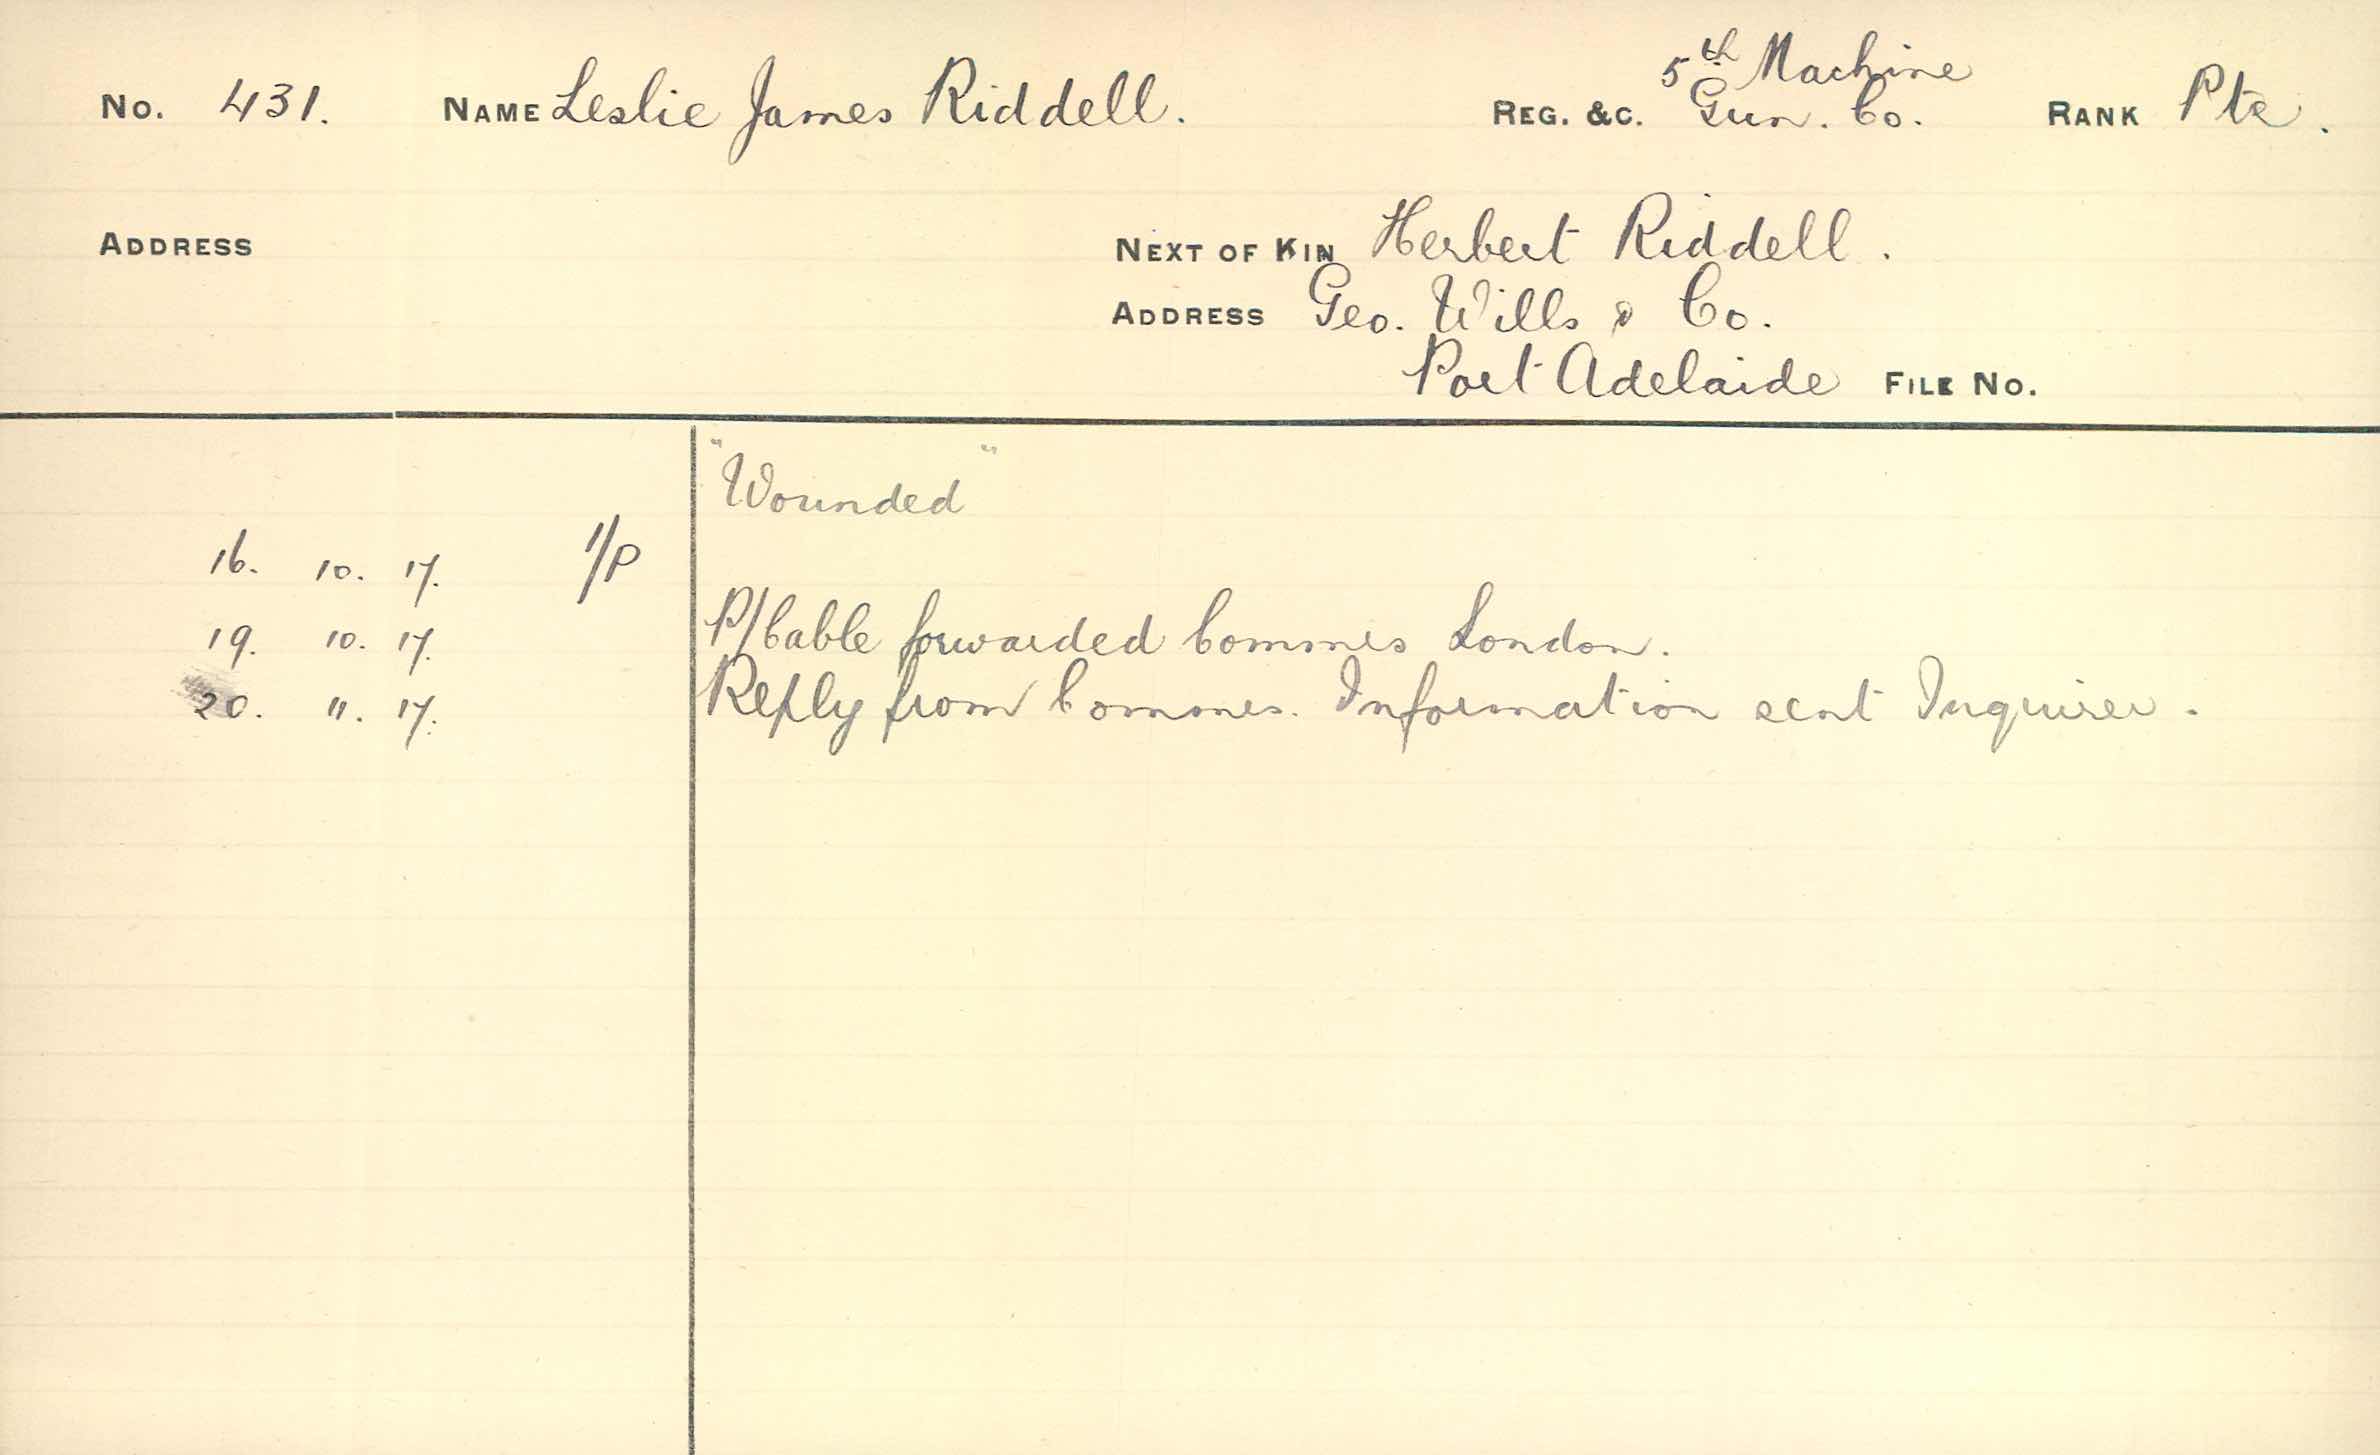 No. 431. NAME Leslie James Riddell. REG. &C. 5th Machine Gun. Co. RANK Pte.
ADDRESS NEXT OF KIN Herbert Riddell.
ADDRESS Geo. Wills & Co.
Port Adelaide FILE No.
"Wounded"
16. 10. 17. 1/P
19. 10. 17. P/Cable forwarded Commrs London.
20. 11. 17. Reply from Commrs. Information sent Inquirer.